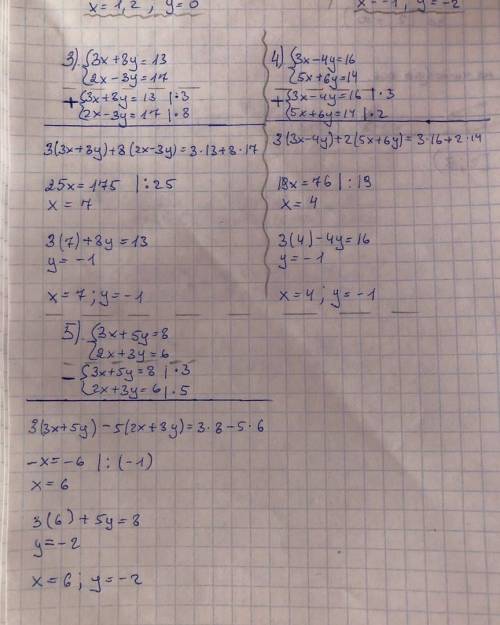 x = 1,2 , y = 0
x = -1, y = -2
3) {3x + 8y = 13
{2x - 3y = 17
+ {3x + 8y = 13 | · 3
{2x - 3y = 17 | · 8
3(3x+8y)+8(2x-3y)=3·13+8·17
25x = 175 | : 25
x = 7
3(7) + 8y = 13
y = -1
x = 7 ; y = -1
4) {3x - 4y = 16
{5x + 6y = 14
+ {3x - 4y = 16 | · 3
{5x + 6y = 14 | · 2
3(3x-4y)+2(5x+6y)=3·16+2·14
19x = 76 | : 19
x = 4
3(4) - 4y = 16
y = -1
x = 4 ; y = -1
5) {3x + 5y = 8
{2x + 3y = 6
- {3x + 5y = 8 | · 3
{2x + 3y = 6 | · 5
3(3x+5y) - 5(2x+3y) = 3·8 - 5·6
-x = -6 | : (-1)
x = 6
3(6) + 5y = 8
y = -2
x = 6 ; y = -2